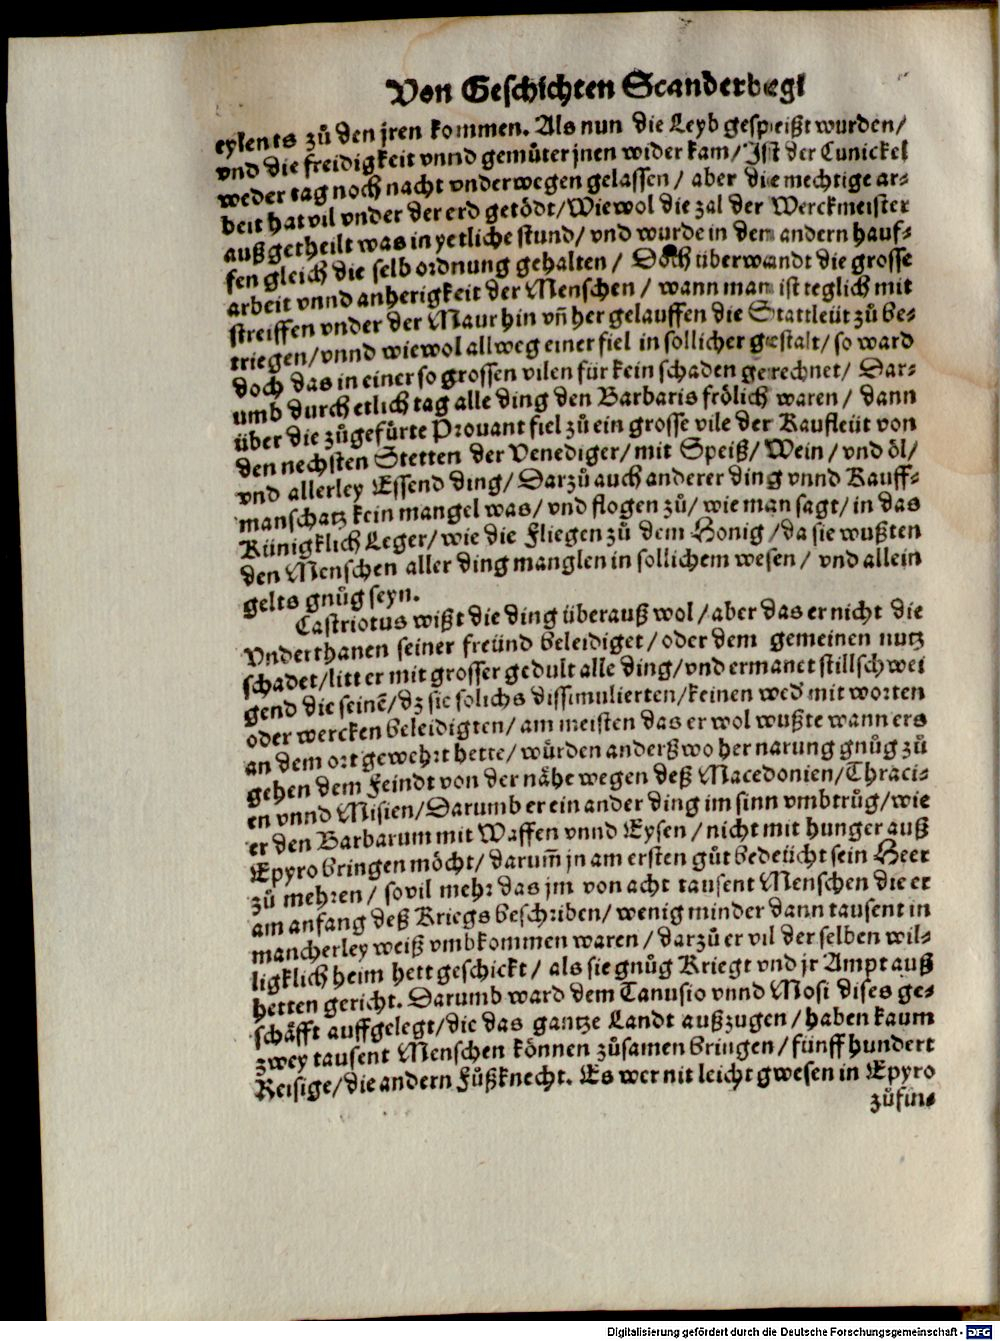 Von Geschichten Scanderbegi
eylents zů den jren kommen. Als nun die Leyb gespeißt wurden/
vnd die freidigkeit vnnd gemüter jnen wider kam/ Ist der Cunickel
weder tag noch nacht vnderwegen gelassen / aber die mechtige ar⸗
beit hat vil vnder der erd getödt/ Wiewol die zal der Werckmeister
außgetheilt was in yetliche stund/ vnd wurde in dem andern hauf⸗
fen gleich die selb ordnung gehalten / Doch überwandt die grosse
arbeit vnnd anherigkeit der Menschen / wann man ist teglich mit
streiffen vnder der Maur hin vñ her gelauffen die Stattleüt zů be⸗
triegen/ vnnd wiewol allweg einer fiel in sollicher gestalt/ so ward
doch das in einer so grossen vilen für kein schaden gerechnet/ Dar⸗
umb durch etlich tag alle ding den Barbaris frölich waren / dann
über die zůgefürte Prouant fiel zů ein grosse vile der Kaufleüt von
den nechsten Stetten der Venediger/ mit Speiß/ Wein / vnd öl/
vnd allerley Essend ding/ Darzů auch anderer ding vnnd Kauff⸗
manschatz kein mangel was/ vnd flogen zů/ wie man sagt/ in das
Künigklich Leger/ wie die Fliegen zů dem Honig / da sie wußten
den Menschen aller ding manglen in sollichem wesen / vnd allein
gelts gnůg seyn.
Castriotus wißt die ding überauß wol / aber das er nicht die
Vnderthanen seiner freünd beleidiget / oder dem gemeinen nutz
schadet/ litt er mit grosser gedult alle ding/ vnd ermanet stillschwei
gend die seinē/ dz sie solichs dissimulierten/ keinen wed' mit worten
oder wercken beleidigten/ am meisten das er wol wußte wann ers
an dem ort gewehrt hette/ würden anderßwo her narung gnůg zů
gehen dem Feindt von der nähe wegen deß Macedonien/ Thraci⸗
en vnnd Misien/ Darumb er ein ander ding im sinn vmbtrůg/ wie
er den Barbarum mit Waffen vnnd Eysen / nicht mit hunger auß
Epyro bringen möcht/ darum̄ jn am ersten gůt bedeücht sein Heer
zů mehren / sovil mehr das jm von acht tausent Menschen die er
am anfang deß Kriegs beschriben/ wenig minder dann tausent in
mancherley weiß vmbkommen waren / darzů er vil der selben wil⸗
ligklich heim hett geschickt / als sie gnůg Kriegt vnd jr Ampt auß
hetten gericht. Darumb ward dem Tanusio vnnd Mosi dises ge⸗
schäfft auffgelegt/ die das gantze Landt außzugen / haben kaum
zwey tausent Menschen können zůsamen bringen / fünff hundert
Reisige/ die andern Fůßknecht. Es wer nit leicht gwesen in Epyro
zůfin⸗
Digitalisierung gefördert durch die Deutsche Forschungsgemeinschaft - DFG